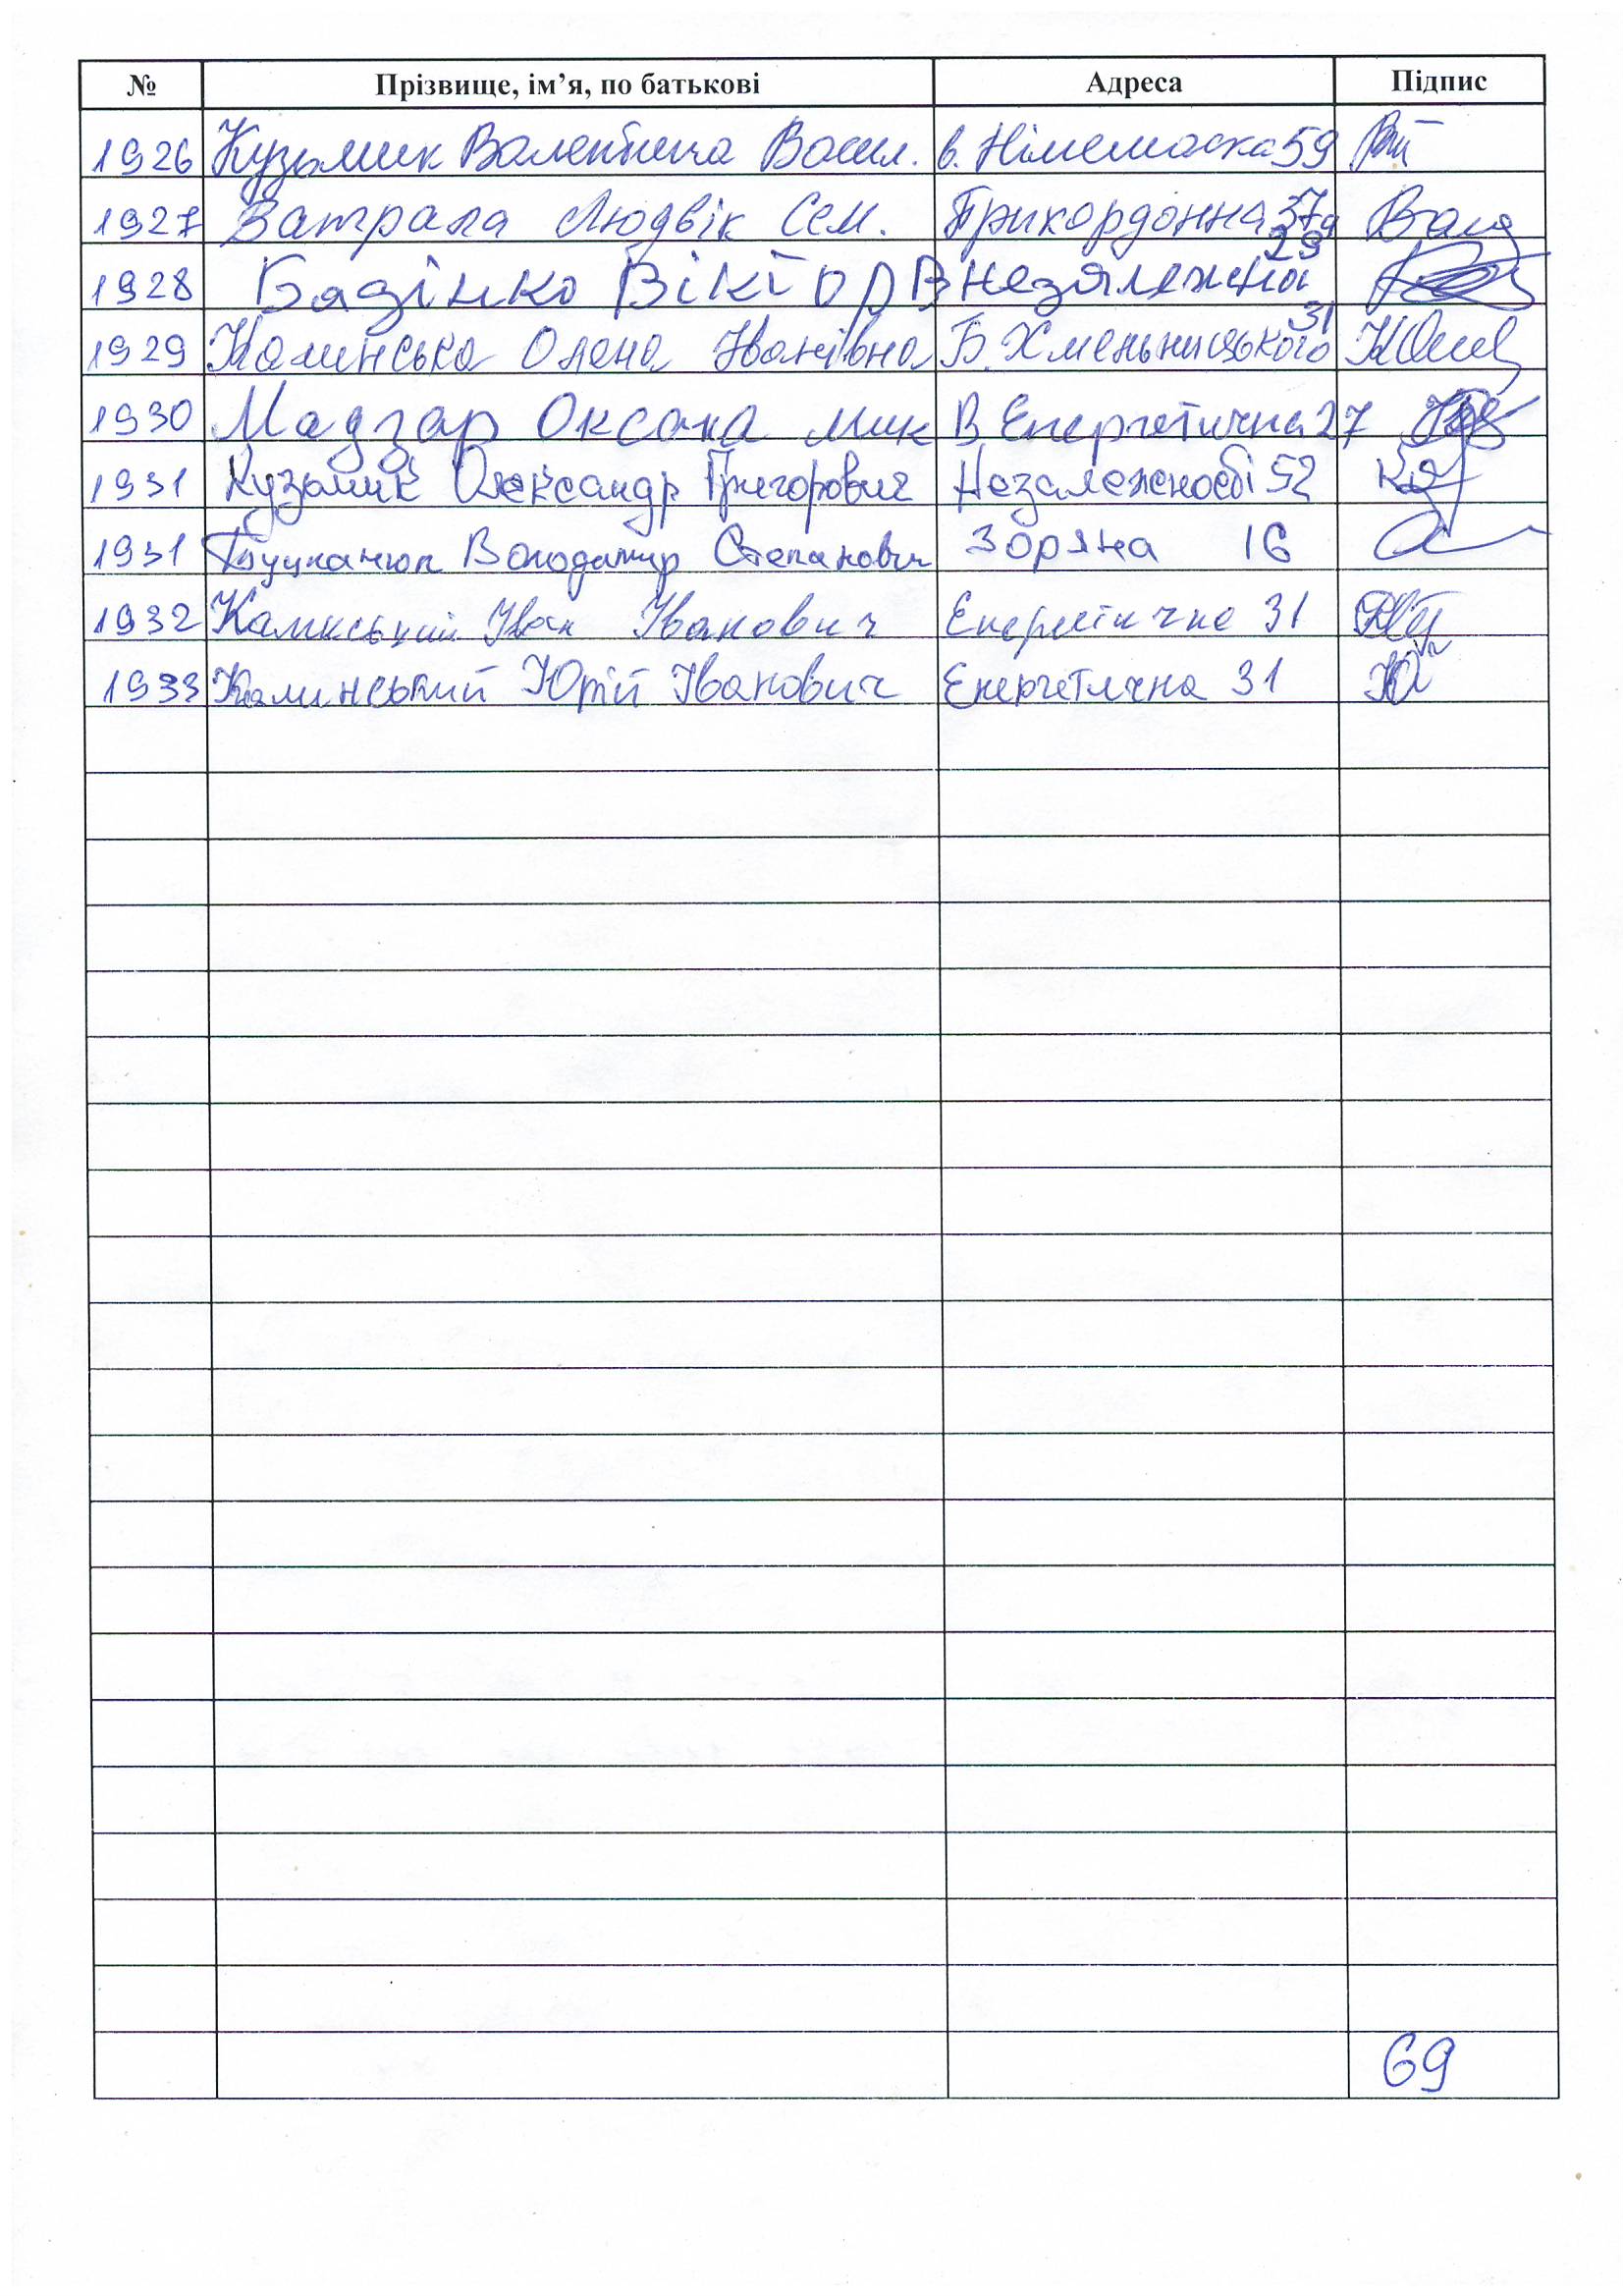 № Прізвище, ім’я, по батькові Адреса Підпис
1926 Кузьмик Валентина Васил. в. 59
1927 Ватрала Людвік Сем. Прикордонна 37
29
1928 Бадзінко Віктор В незалежна
31
1929 Калинська Олена Іванівна Б. Хмельницького
1930 Мадзар Оксана мик В Енергетична 27
1931 Кузьмик Олександр Григорович Незалежності 52
1931 Володимир Степанович Зоряна 16
1932 Іван Іванович Енергетична 31
1933 Калинський Юрій Іванович Енергетична 31
69